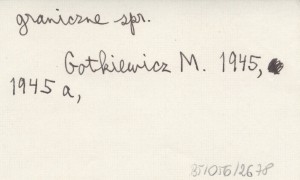 graniczne spr.
Gotkiewicz M. 1945,
1945 a,
85/056/2678